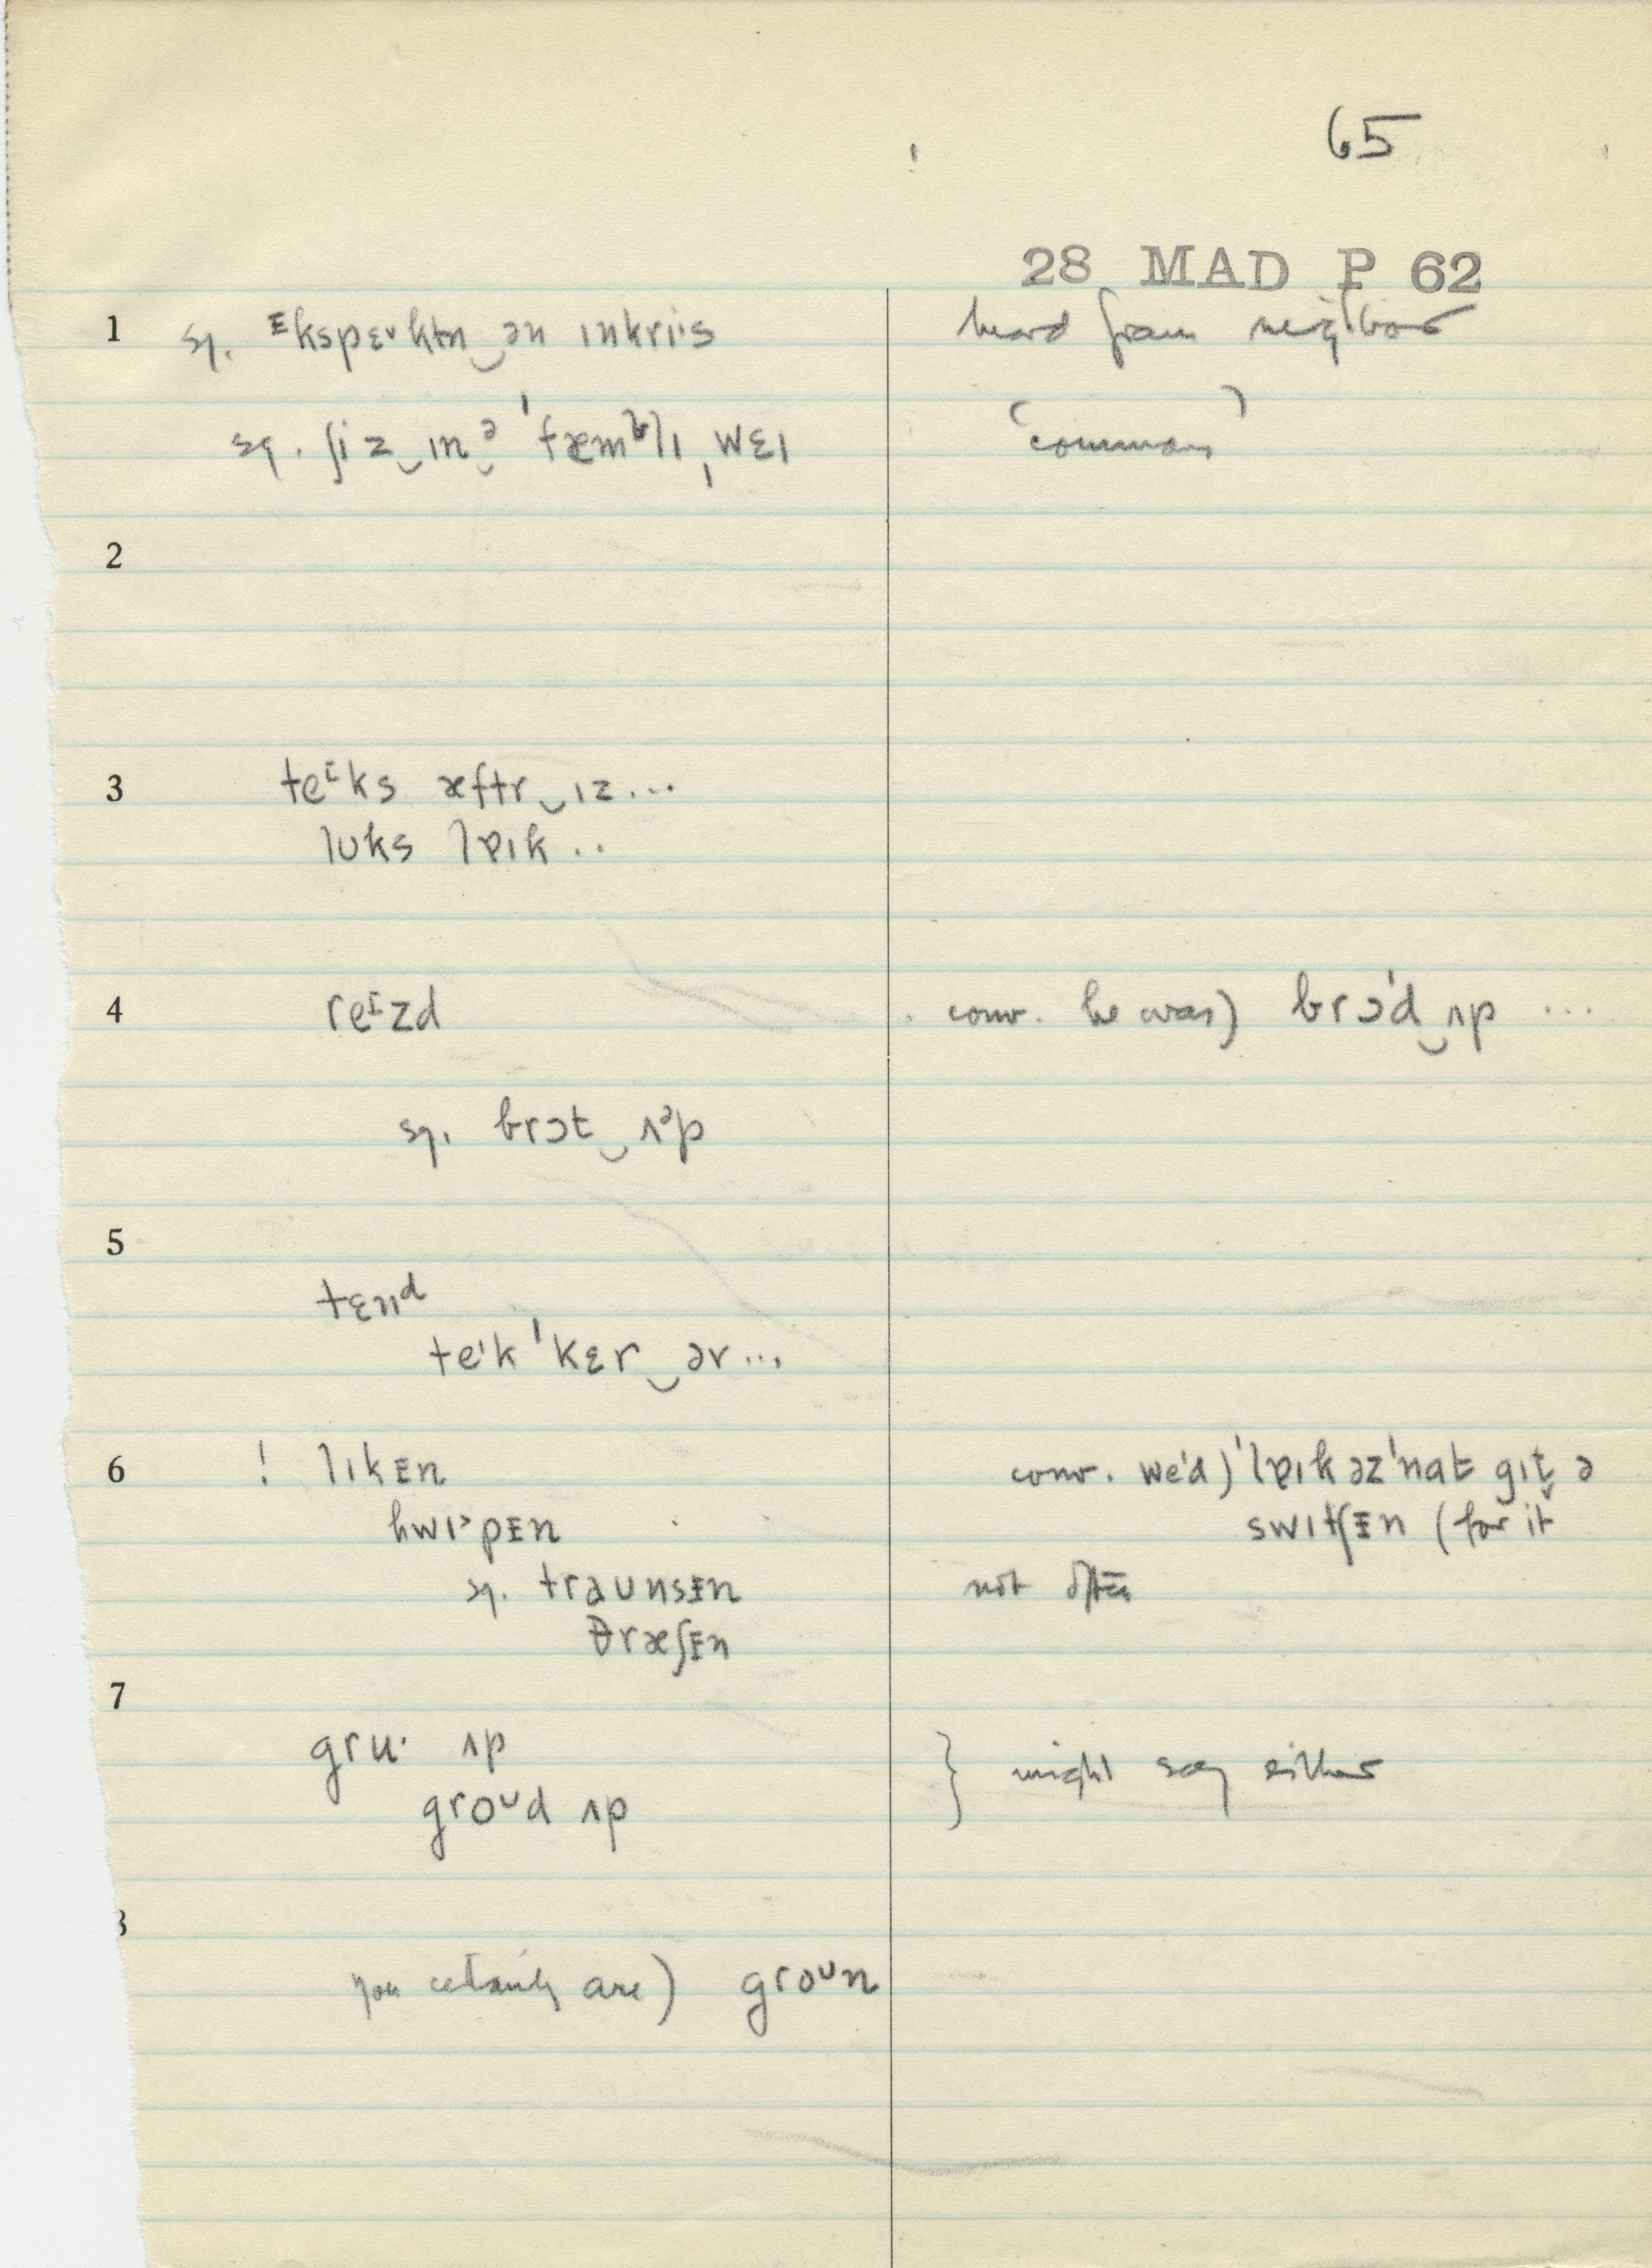 65
28 MAD P 62
1 sq. ᴱkspɛᵛktn‿ən ɪnkriˑs heard from neighbor
sq. ʃiz‿ɪnᵊ ˈfæmᵇlɪˌwɛɪ (common)
2
3 teᶦks æftr‿ɪz...
lʊks lɐɪk..
4 reᶦzd conv. he was) brɔˈd‿ʌp ...
sq. brɔt‿ʌᵊp
5
tɛnᵈ
teˈk ˈkɛr‿ər...
6 ! lɪkᴇn conv. we'd) ˈlɐɪk əzˈnat gɪt̬ ə
hwɪ˃pᴇn swɪtʃᴇn (for it
sq. traʊnsᴇn not often
θræʃᴇn
7
gruˑ ʌp } might say either
groᶷd ʌp
8
you certainly are) groᶷn